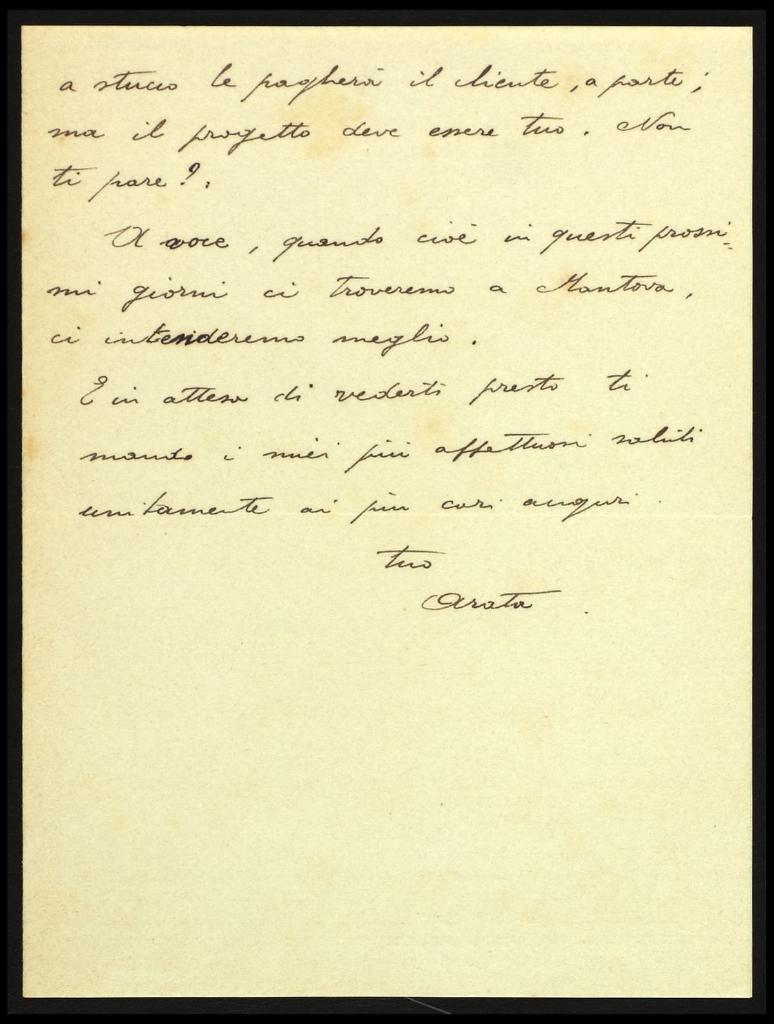 a stucco le pagherà il cliente, a parte;
ma il progetto deve essere tuo. Non
ti pare?.
A voce, quando cioè in questi prossi-
mi giorni ci troveremo a Mantova,
ci intenderemo meglio.
E in attesa di vederti presto ti
mando i miei più affettuosi saluti
unitamente ai più cari auguri.
tuo
Arata